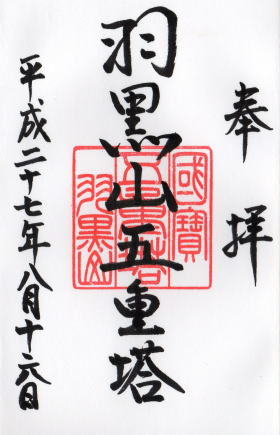 奉拝
羽黒山五重塔
國寶
五重塔
羽黒山
平成二十七年八月十六日